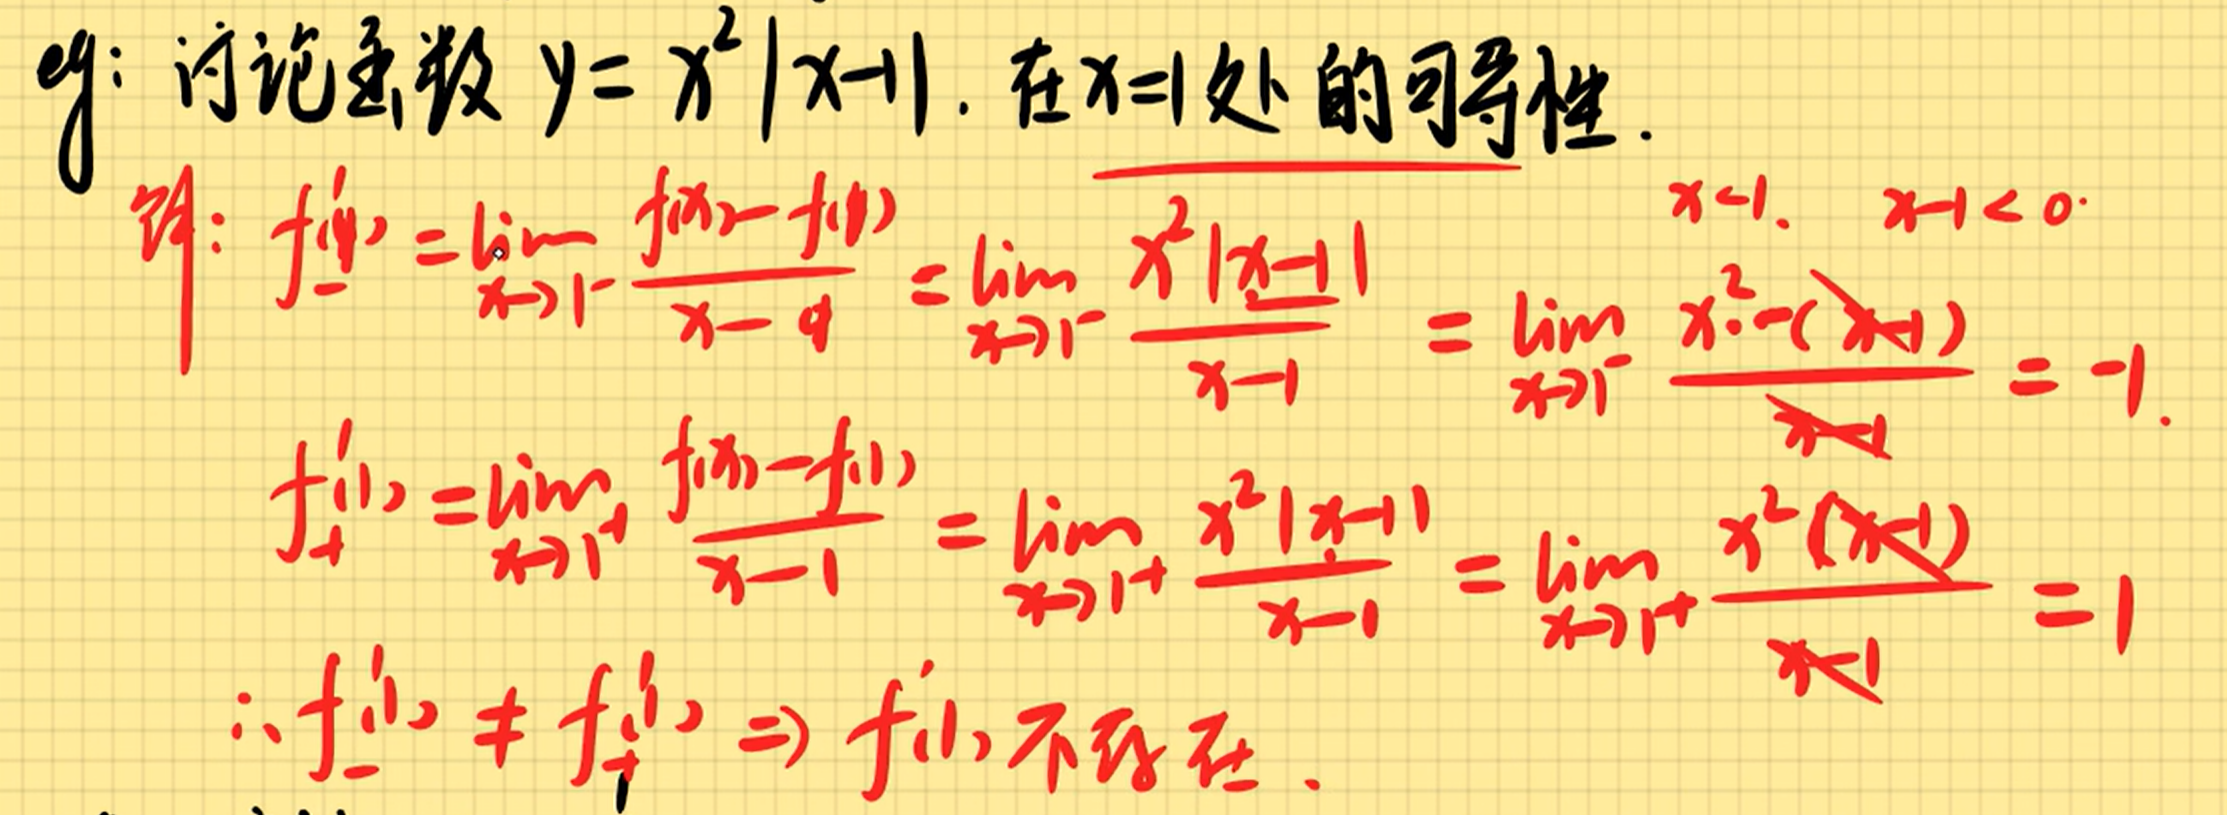 eg: 讨论函数 y = x²|x-1|. 在x=1处的可导性.
x<1. x-1<0.
解: f'₋(1) = lim_{x→1⁻} (f(x)-f(1))/(x-1) = lim_{x→1⁻} x²|x-1|/(x-1) = lim_{x→1⁻} x²·-(x-1)/(x-1) = -1.
f'₊(1) = lim_{x→1⁺} (f(x)-f(1))/(x-1) = lim_{x→1⁺} x²|x-1|/(x-1) = lim_{x→1⁺} x²(x-1)/(x-1) = 1
∴ f'₋(1) ≠ f'₊(1) ⇒ f'(1) 不存在.